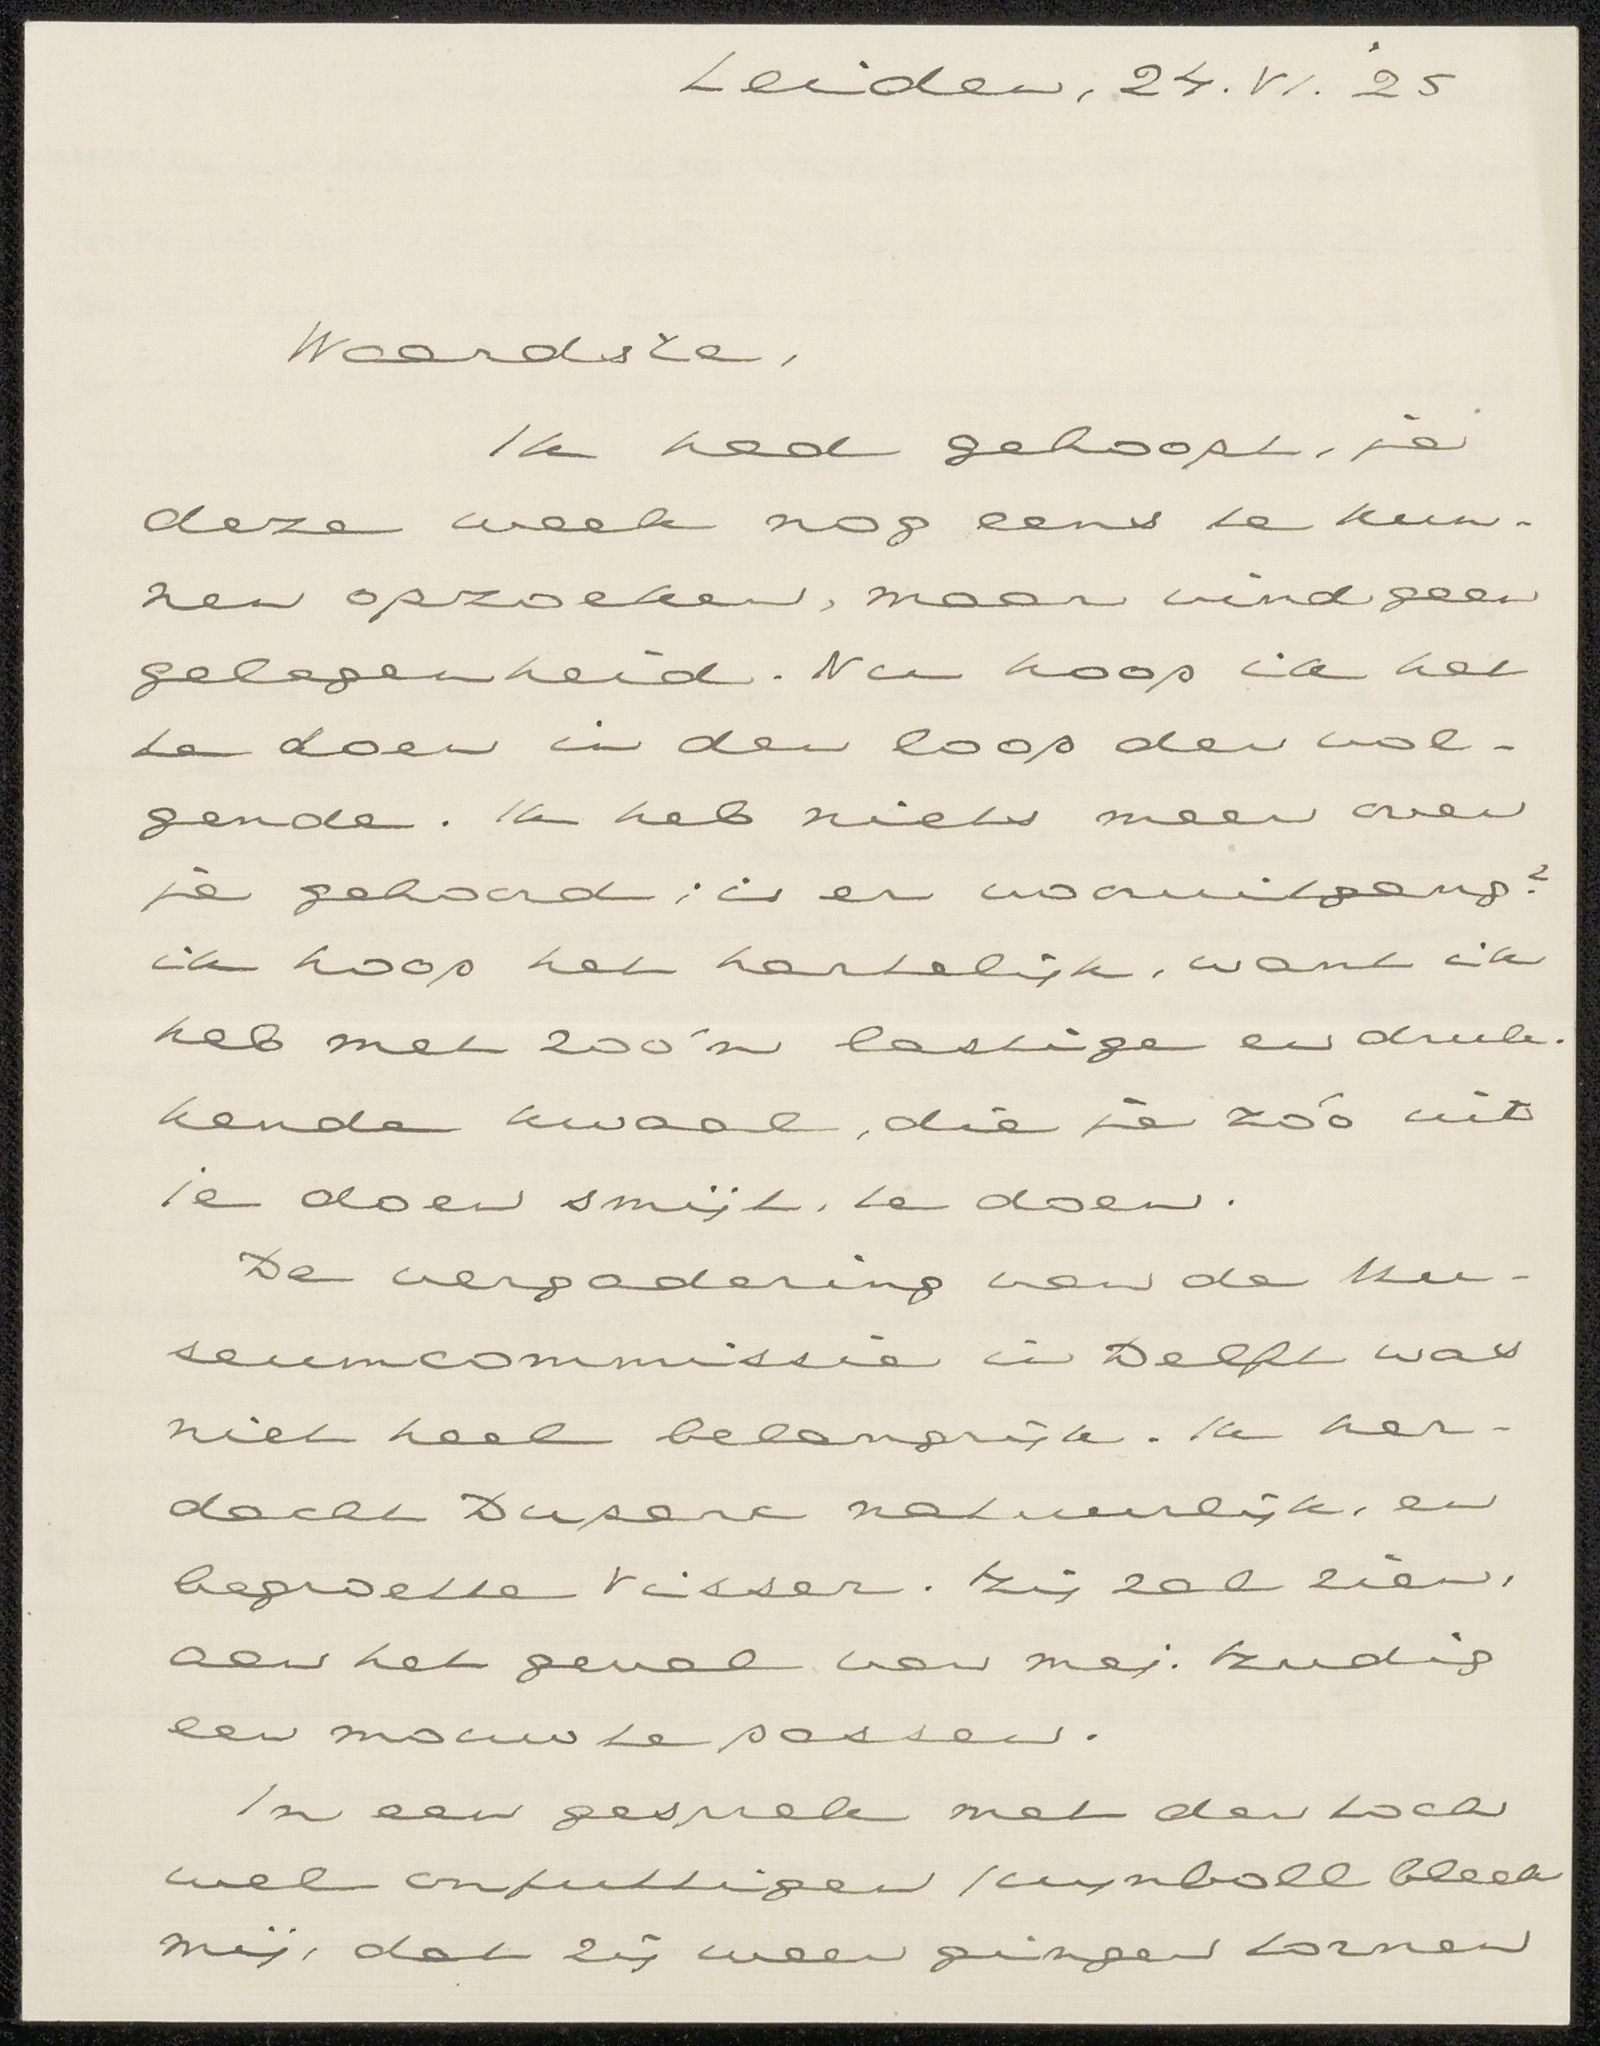 Leiden, 24.VI.'25
Waardste,
Ik had gehoopt, je
deze week nog eens te kun-
nen opzoeken, maar vind geen
gelegenheid. Nu hoop ik het
te doen in den loop der vol-
gende. Ik heb niets meer over
je gehoord; is er vooruitgang?
ik hoop het hartelijk, want ik
heb met zoo'n lastige en druk-
kende kwaal, die je zóó uit
je doen smijt, te doen.
De vergadering van de Mu-
seumcommissie in Delft was
niet heel belangrijk. Ik her-
dacht Duparc natuurlijk, en
begroette Visser. Hij zal zien,
aan het geval van mej. Hudig
een mouw te passen.
In een gesprek met den toch
wel onfuttigen Juynboll bleek
mij, dat zij weer gingen tornen